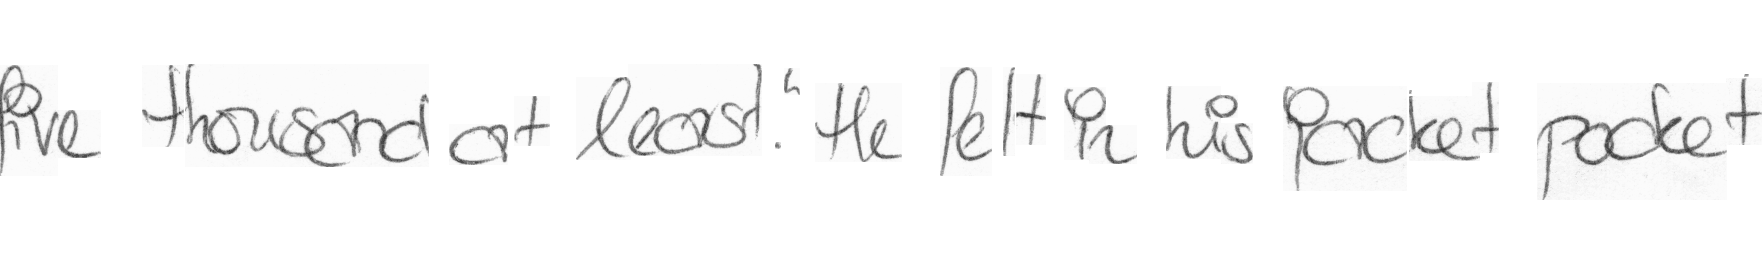 five thousand at least." He felt in his jacket pocket